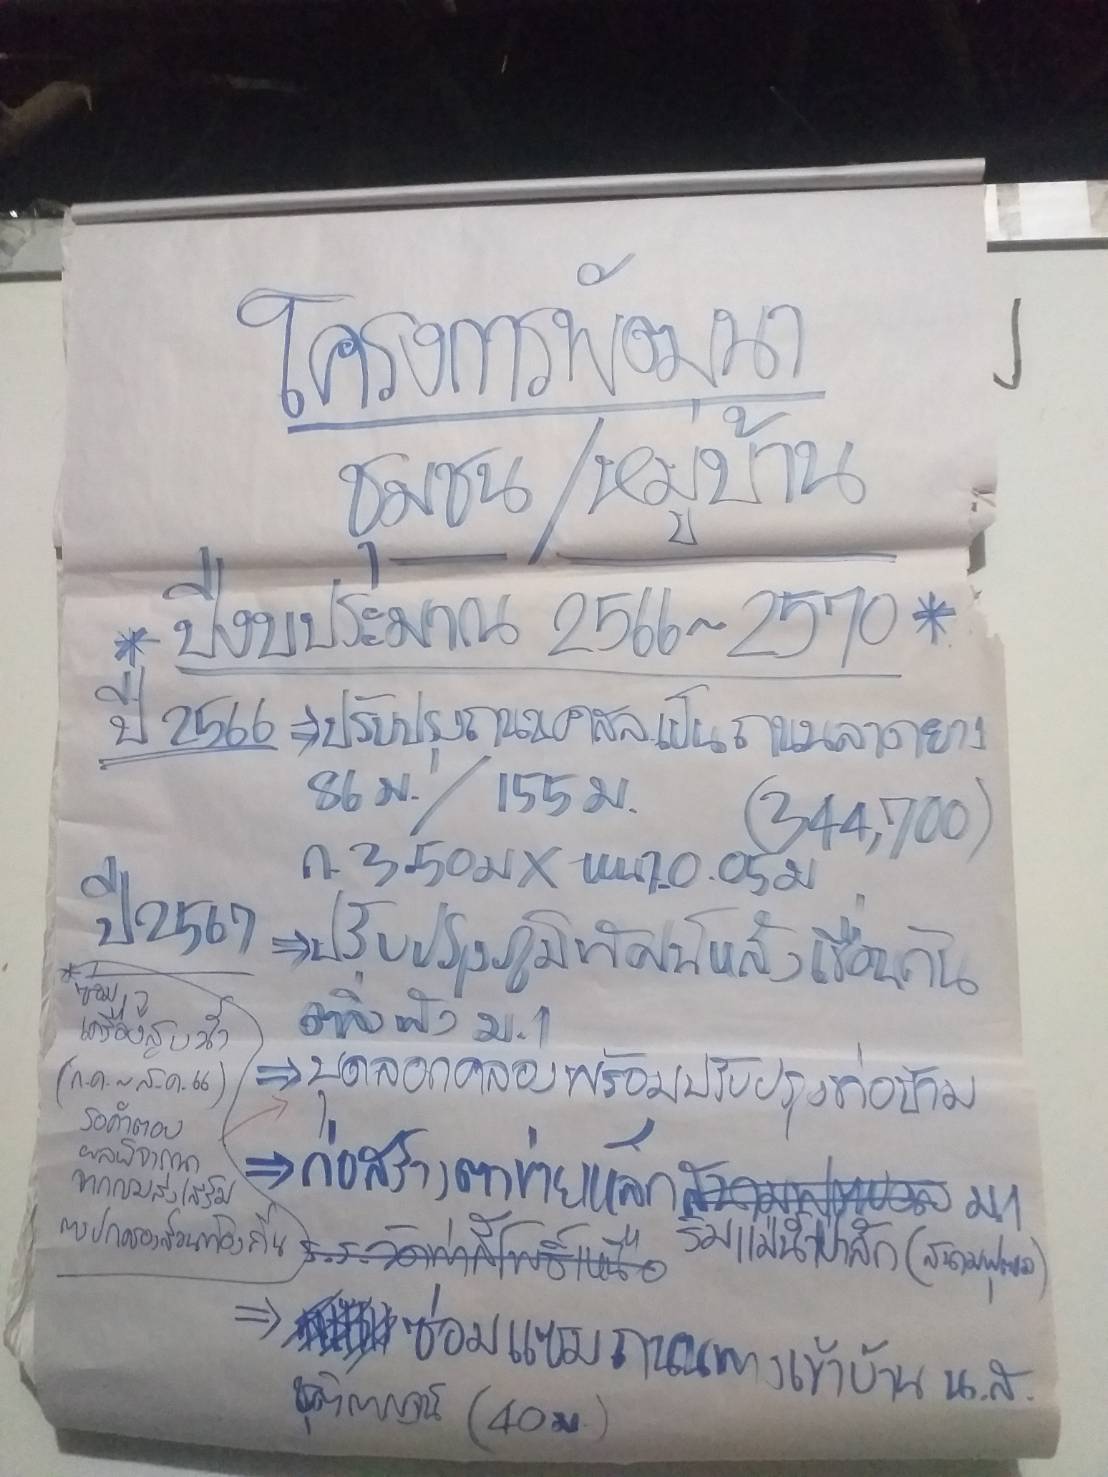 โครงการพัฒนา
ชุมชน / หมู่บ้าน
* ปีงบประมาณ 2566 ~ 2570 *
ปี 2566 ⇒ ปรับปรุงถนน คสล. เป็นถนนลาดยาง
86 ม. / 155 ม. (344,700)
ก. 3.50 ม X หนา 0.05 ม
ปี 2567 ⇒ ปรับปรุงภูมิทัศน์หลังเขื่อนกัน
ตลิ่งพัง ม.1
⇒ ขุดลอกคลองพร้อมปรับปรุงท่อข้าม
⇒ ก่อสร้างตาข่ายเหล็ก ม.1
ริมแม่น้ำป่าสัก (สนามฟุตบอล)
⇒ ซ่อมแซมถนนทางเข้าบ้าน น.ส.
(40 ม.)
* ซ่อม
เครื่องสูบน้ำ
(ก.ค. ~ ส.ค. 66)
รอคำตอบ
ผลพิจารณา
จากกรมส่งเสริม
การปกครองส่วนท้องถิ่น